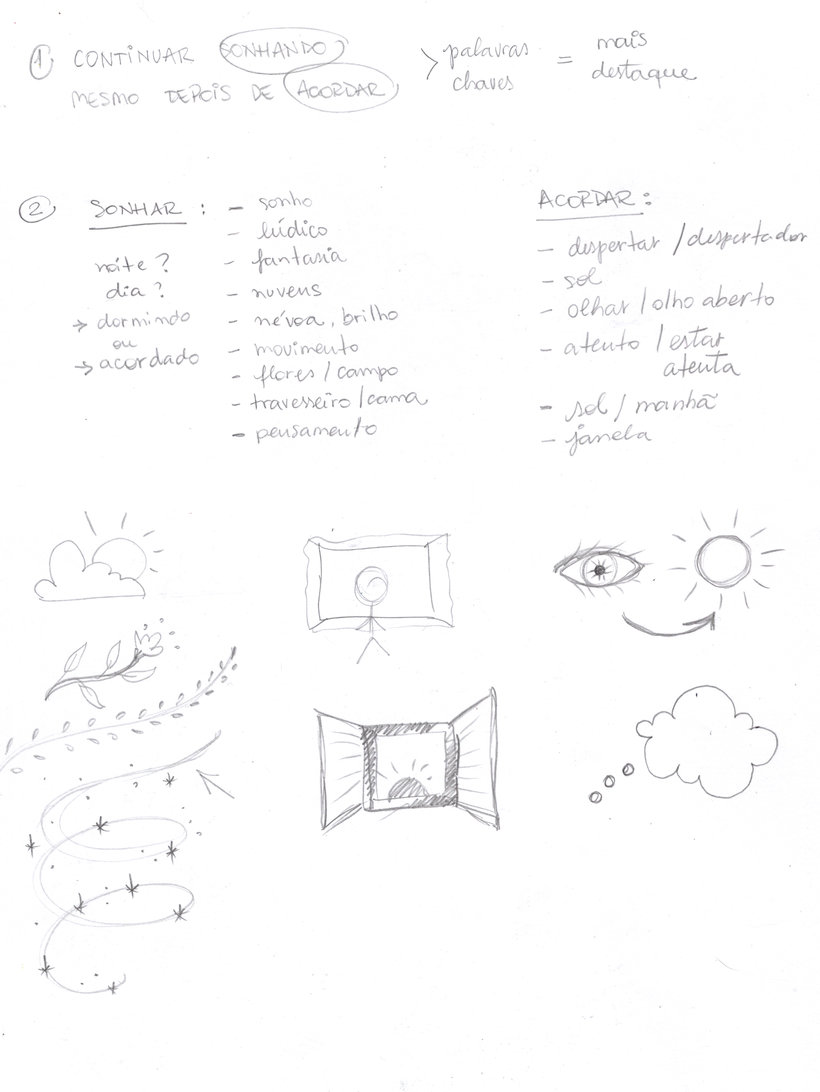 1 CONTINUAR SONHANDO
MESMO DEPOIS DE ACORDAR
> palavras chaves = mais destaque
2 SONHAR :
noite ?
dia ?
→ dormindo
ou
→ acordado
- sonho
- lúdico
- fantasia
- nuvens
- névoa, brilho
- movimento
- flores / campo
- travesseiro / cama
- pensamento
ACORDAR :
- despertar / despertador
- sol
- olhar / olho aberto
- atento / estar
atenta
- sol / manhã
- janela